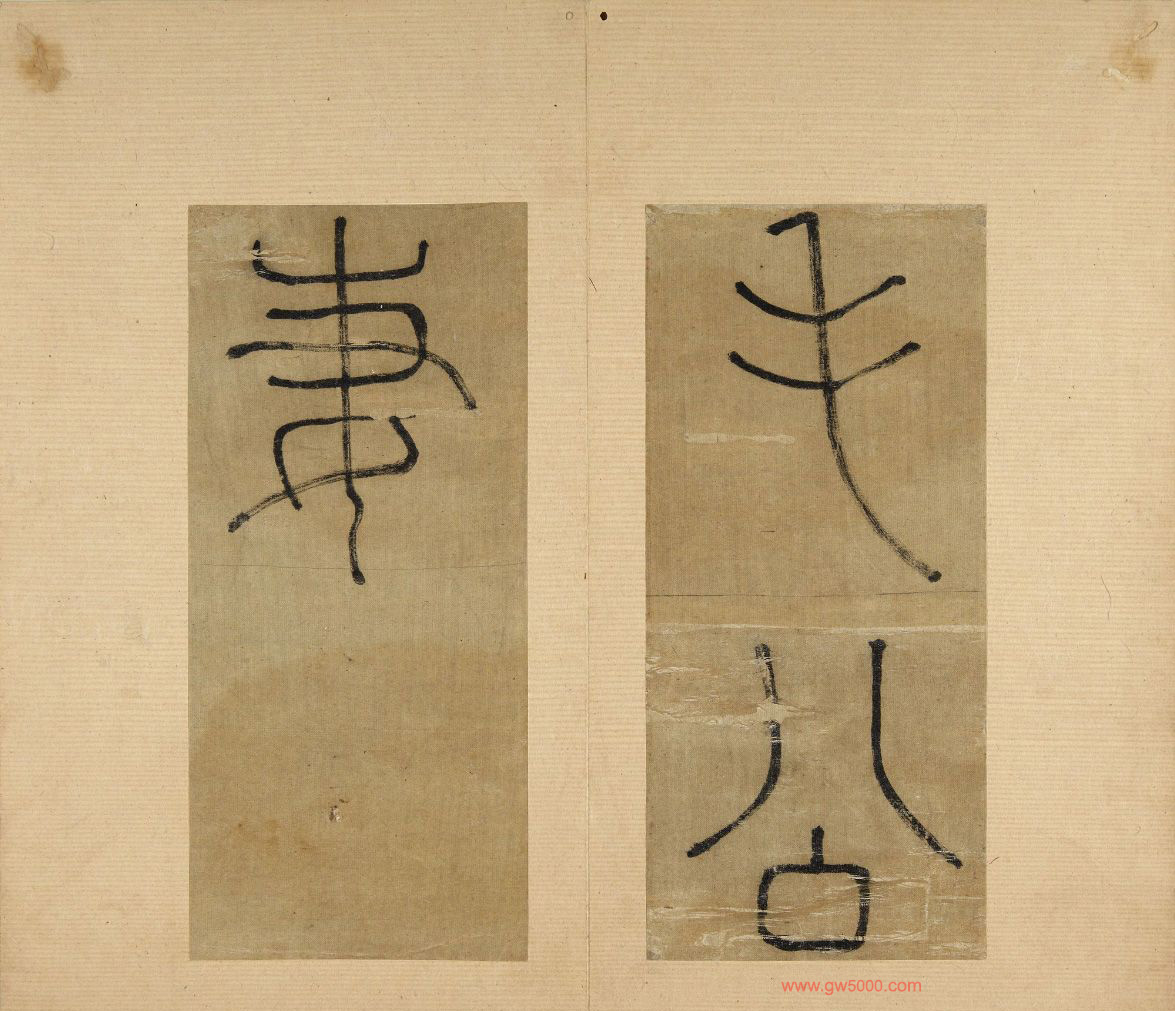 毛公
妻
www.gw5000.com